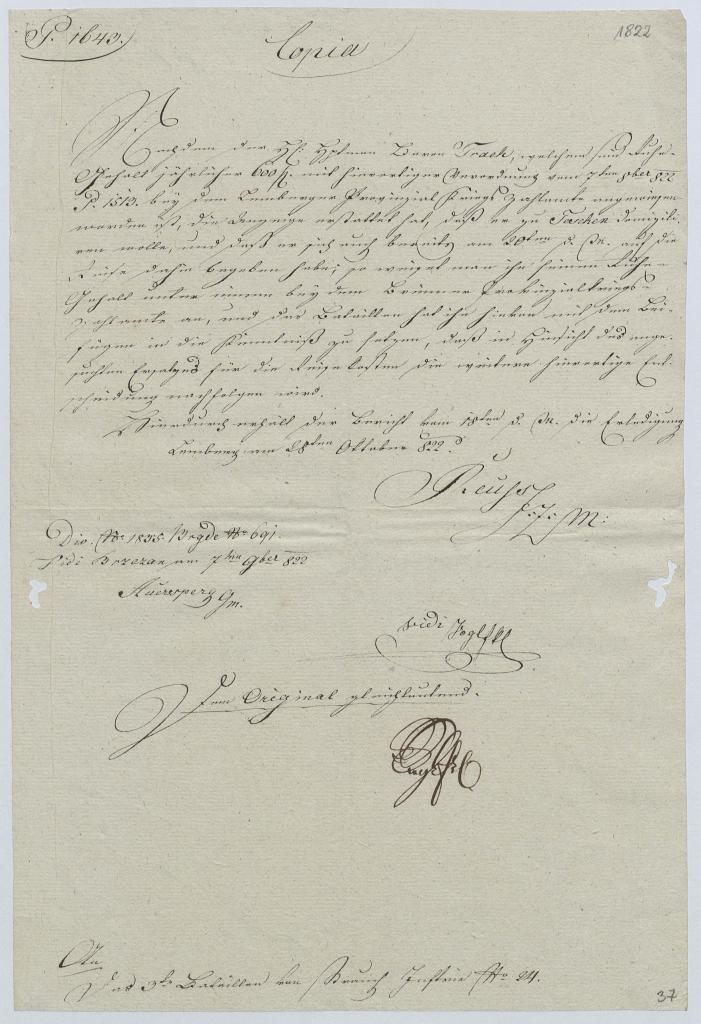 P. 1643.
Copia
1822
Nachdem der H: Hptman Baron Trach, welchem sein Ruhe-
Gehalt jährlicher 600 f. mit hierortiger Verordnung vom 7ten 8ber 822
P. 1513. bey dem Lemberger Provinzial Kriegs Zahlamte angewiesen
worden ist, die Anzeige erstattet hat, daß er zu Teschen domizili-
ren wolle, und daß er sich auch bereits am d. M. auf die
Reise dahin begeben habe; so weiset man ihm seinen Ruhe-
Gehalt unter einem bey dem Brünner Provinzialkriegs-
zahlamte an, und das Bataillon hat ihn hievon mit dem Bei-
fügen in die Kenntniß zu setzen, daß in Hinsicht des ange-
suchten Ersatzes für die Reisekosten die weitere hierortige Ent-
scheidung nachfolgen wird.
Hiedurch erhält der Bericht vom 18ten d. M. die Erledigung
Lemberg am 28ten Oktober 822.
Reuss
F: Z: M:
Div. No 1835. Brgde No 691.
Vidi Brzezan am 7ten 9ber 822
Auersperg Gm.
vidi
Dem Original gleichlautend.
An
Das 3te Bataillon von Strauch Inftrie No 24.
37